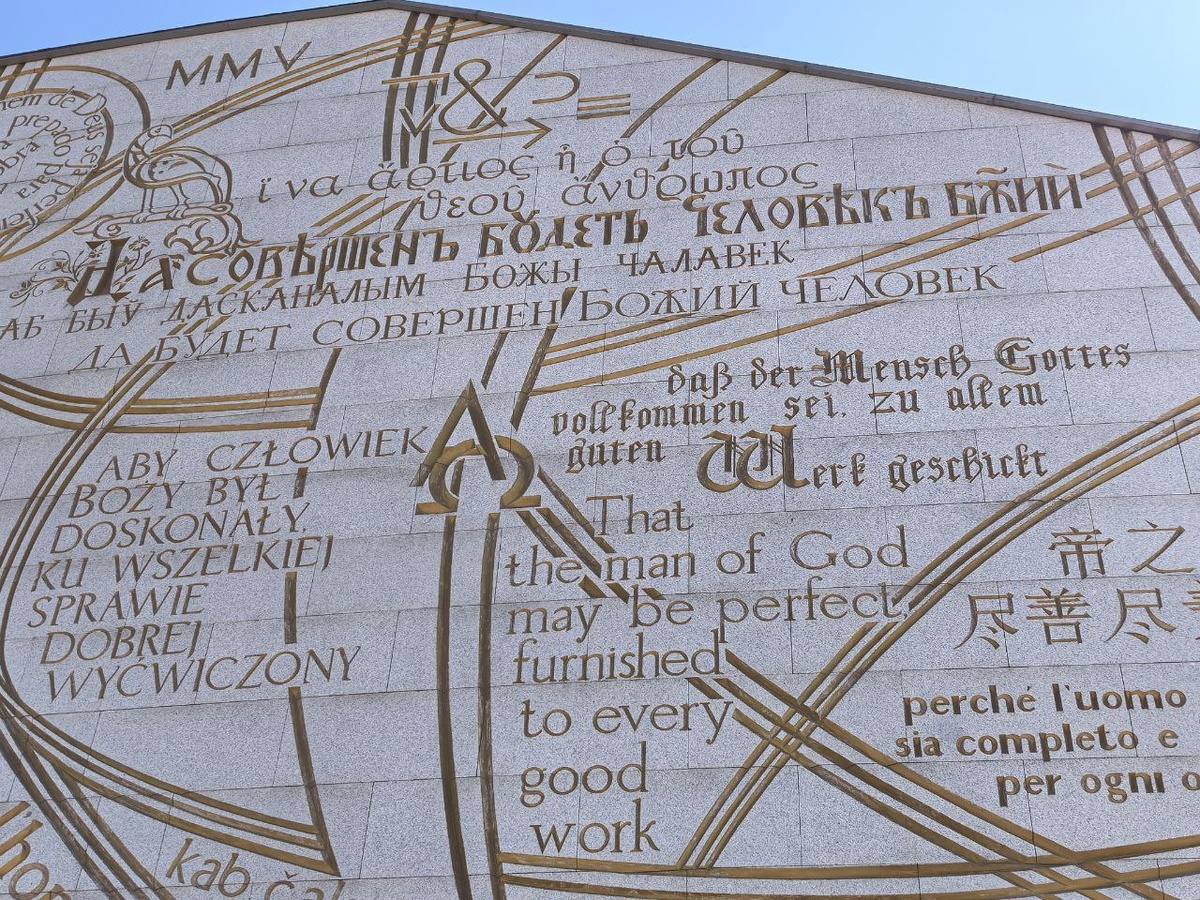 MMV
&
ἵνα ἄρτιος ἦ ὁ τοῦ
θεοῦ ἄνθρωπος
Да совѣршенъ бꙋдетъ человѣкъ бж҃ий
АБ БЫЎ ДАСКАНАЛЫМ БОЖЫ ЧАЛАВЕК
ДА БУДЕТ СОВЕРШЕН БОЖИЙ ЧЕЛОВЕК
daß der Mensch Gottes
vollkommen sei, zu allem
guten Werk geschickt
ABY CZŁOWIEK
BOŻY BYŁ
DOSKONAŁY,
KU WSZELKIEJ
SPRAWIE
DOBREJ
WYĆWICZONY
ΑΩ
That
the man of God
may be perfect,
furnished
to every
good
work
帝之
尽善尽
perché l'uomo
sia completo e
per ogni o
kab